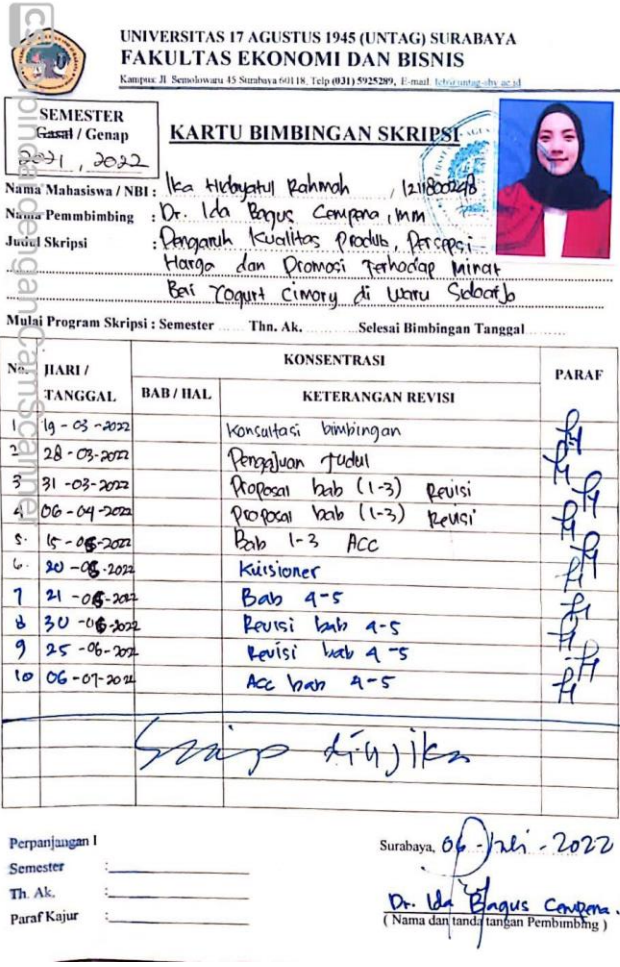 UNIVERSITAS 17 AGUSTUS 1945 (UNTAG) SURABAYA
FAKULTAS EKONOMI DAN BISNIS
Kampus: Jl. Semolowaru 45 Surabaya 60118, Telp (031) 5925289, E-mail: feb@untag-sby.ac.id
SEMESTER
Gasal / Genap
2021, 2022
KARTU BIMBINGAN SKRIPSI
Nama Mahasiswa / NBI : Ika Hidayatul Rahmah, 1211800248
Nama Pemmbimbing : Dr. Ida Bagus Cempena, MM
Judul Skripsi : Pengaruh Kualitas Produk, Persepsi
Harga dan Promosi Terhadap Minat
Beli Yogurt Cimory di Waru Sidoarjo
Mulai Program Skripsi : Semester ...... Thn. Ak. .......... Selesai Bimbingan Tanggal ........
No. HARI / TANGGAL KONSENTRASI PARAF
BAB / HAL KETERANGAN REVISI
1 19-03-2022 Konsultasi bimbingan
2 28-03-2022 Pengajuan Judul
3 31-03-2022 Proposal bab (1-3) Revisi
4 06-04-2022 Proposal bab (1-3) Revisi
5. 15--2022 Bab 1-3 ACC
6. 20--2022 Kuisioner
7 21--2022 Bab 4-5
8 30--2022 Revisi bab 4-5
9 25-06-2022 Revisi bab 4-5
10 06-07-2022 Acc bab 4-5
Siap diujikan
Perpanjangan I
Semester :
Th. Ak. :
Paraf Kajur :
Surabaya, 06 - Juli - 2022
Dr. Ida Bagus Cempena.
( Nama dan tanda tangan Pembimbing )
Dipindai dengan CamScanner